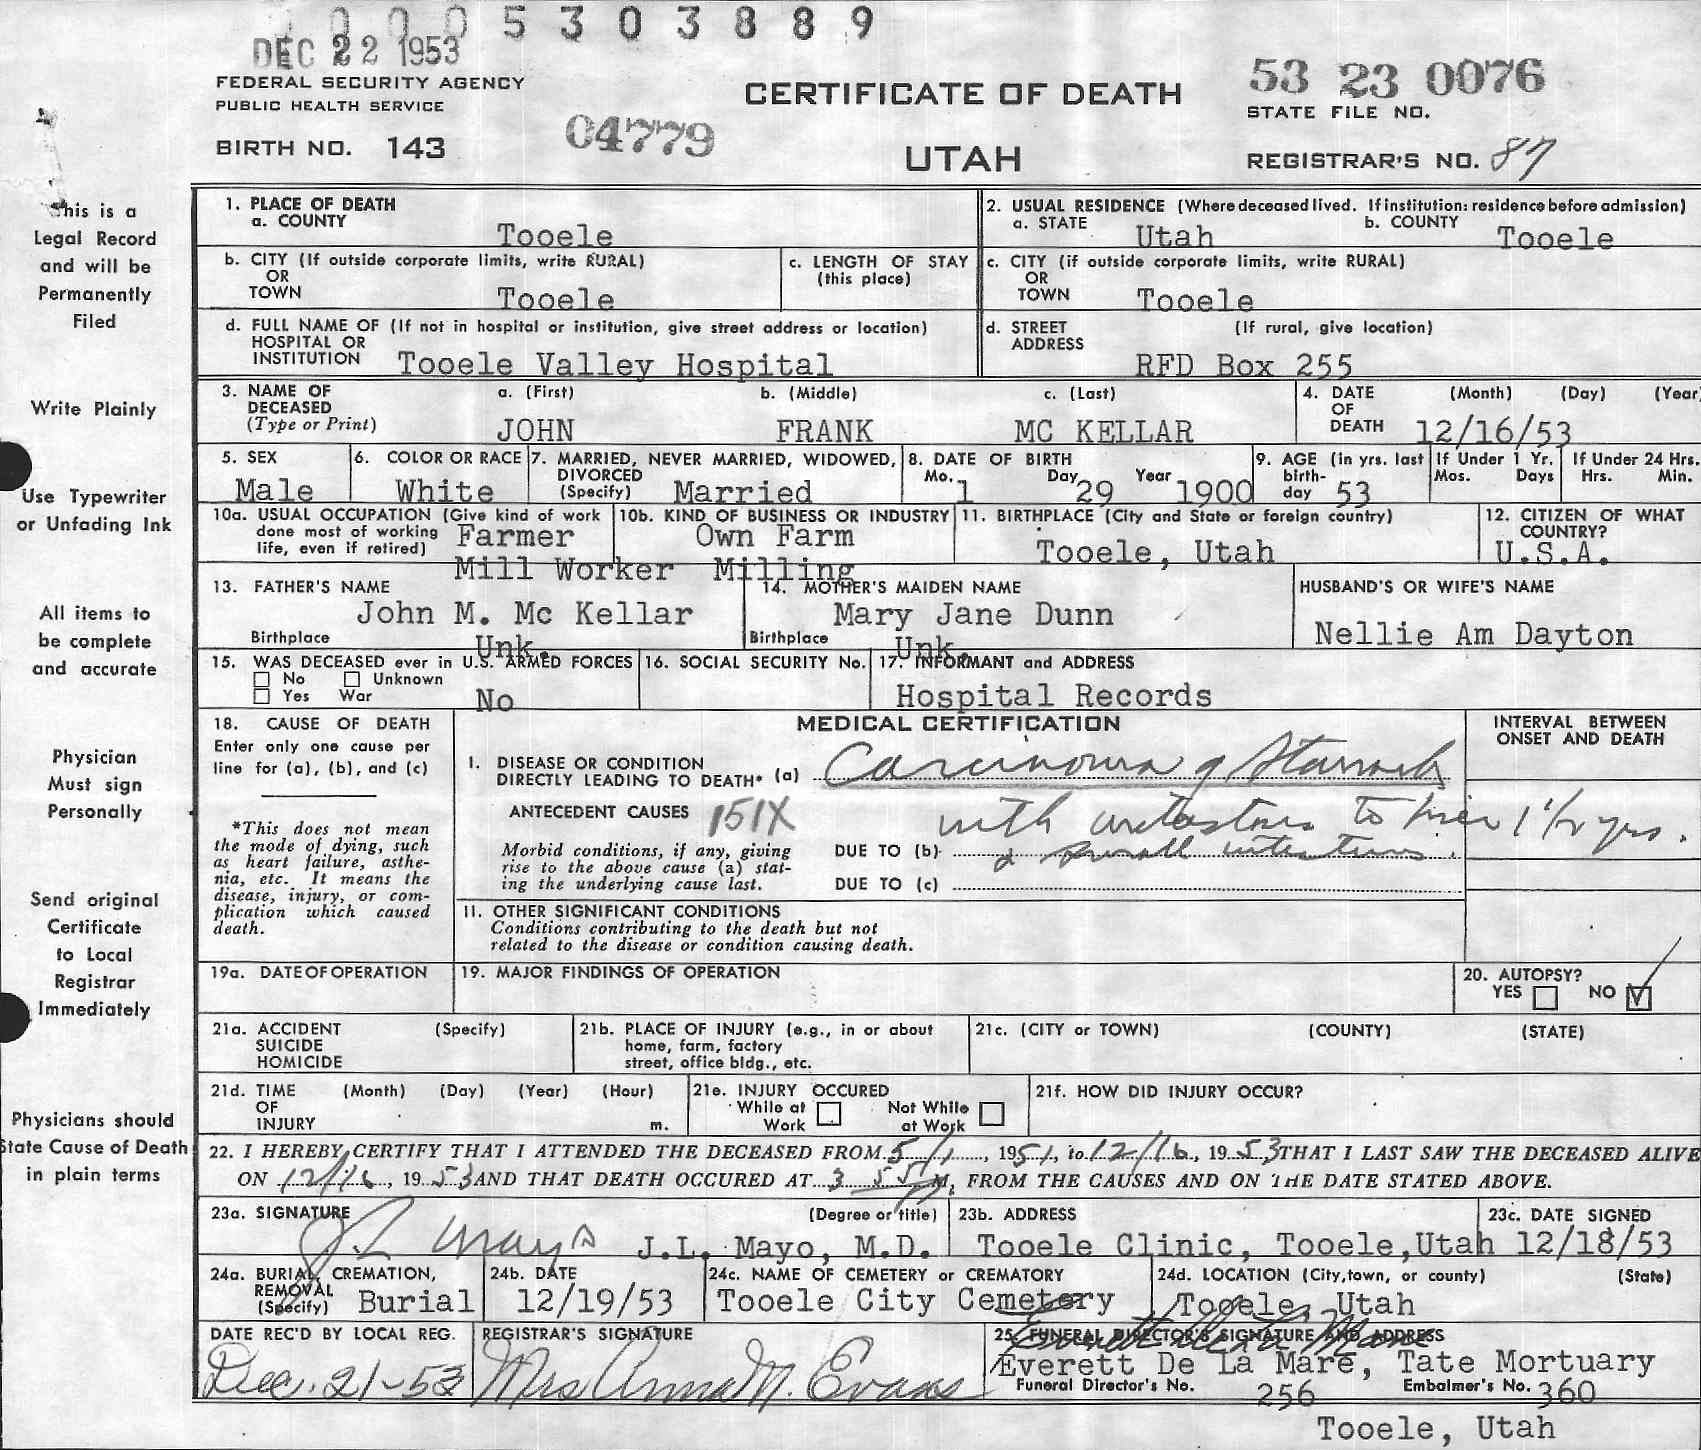 0005303889
DEC 22 1953
FEDERAL SECURITY AGENCY
PUBLIC HEALTH SERVICE
BIRTH NO. 143
04779
CERTIFICATE OF DEATH
UTAH
53 23 0076
STATE FILE NO.
REGISTRAR'S NO. 87
This is a
Legal Record
and will be
Permanently
Filed
Write Plainly
Use Typewriter
or Unfading Ink
All items to
be complete
and accurate
Physician
Must sign
Personally
Send original
Certificate
to Local
Registrar
Immediately
Physicians should
State Cause of Death
in plain terms
1. PLACE OF DEATH
a. COUNTY
Tooele
2. USUAL RESIDENCE (Where deceased lived. If institution: residence before admission)
a. STATE Utah b. COUNTY Tooele
b. CITY (If outside corporate limits, write RURAL)
OR
TOWN Tooele
c. LENGTH OF STAY
(this place)
c. CITY (if outside corporate limits, write RURAL)
OR
TOWN Tooele
d. FULL NAME OF (If not in hospital or institution, give street address or location)
HOSPITAL OR
INSTITUTION Tooele Valley Hospital
d. STREET (If rural, give location)
ADDRESS
RFD Box 255
3. NAME OF a. (First) b. (Middle) c. (Last)
DECEASED
(Type or Print) JOHN FRANK MC KELLAR
4. DATE (Month) (Day) (Year)
OF
DEATH 12/16/53
5. SEX
Male
6. COLOR OR RACE
White
7. MARRIED, NEVER MARRIED, WIDOWED,
DIVORCED
(Specify) Married
8. DATE OF BIRTH
Mo. 1 Day 29 Year 1900
9. AGE (in yrs. last
birth-
day 53
If Under 1 Yr.
Mos. Days
If Under 24 Hrs.
Hrs. Min.
10a. USUAL OCCUPATION (Give kind of work
done most of working
life, even if retired) Farmer
Mill Worker
10b. KIND OF BUSINESS OR INDUSTRY
Own Farm
Milling
11. BIRTHPLACE (City and State or foreign country)
Tooele, Utah
12. CITIZEN OF WHAT
COUNTRY?
U.S.A.
13. FATHER'S NAME
John M. Mc Kellar
Birthplace Unk.
14. MOTHER'S MAIDEN NAME
Mary Jane Dunn
Birthplace Unk.
HUSBAND'S OR WIFE'S NAME
Nellie Am Dayton
15. WAS DECEASED ever in U.S. ARMED FORCES
No Unknown
Yes War No
16. SOCIAL SECURITY No.
17. INFORMANT and ADDRESS
Hospital Records
18. CAUSE OF DEATH
Enter only one cause per
line for (a), (b), and (c)
*This does not mean
the mode of dying, such
as heart failure, asthe-
nia, etc. It means the
disease, injury, or com-
plication which caused
death.
MEDICAL CERTIFICATION
I. DISEASE OR CONDITION
DIRECTLY LEADING TO DEATH* (a) Carcinoma of Stomach
ANTECEDENT CAUSES 151X
with metastasis to liver
Morbid conditions, if any, giving
rise to the above cause (a) stat-
ing the underlying cause last.
DUE TO (b) & small intestines.
DUE TO (c)
INTERVAL BETWEEN
ONSET AND DEATH
1 1/2 yrs.
II. OTHER SIGNIFICANT CONDITIONS
Conditions contributing to the death but not
related to the disease or condition causing death.
19a. DATE OF OPERATION
19. MAJOR FINDINGS OF OPERATION
20. AUTOPSY?
YES NO
21a. ACCIDENT (Specify)
SUICIDE
HOMICIDE
21b. PLACE OF INJURY (e.g., in or about
home, farm, factory
street, office bldg., etc.
21c. (CITY or TOWN) (COUNTY) (STATE)
21d. TIME (Month) (Day) (Year) (Hour)
OF
INJURY m.
21e. INJURY OCCURED
While at Work
Not While at Work
21f. HOW DID INJURY OCCUR?
22. I HEREBY CERTIFY THAT I ATTENDED THE DECEASED FROM 5/1, 1951, to 12/16, 1953 THAT I LAST SAW THE DECEASED ALIVE
ON 12/16, 1953 AND THAT DEATH OCCURED AT 3 55 M, FROM THE CAUSES AND ON THE DATE STATED ABOVE.
23a. SIGNATURE (Degree or title)
J L Mayo J.L. Mayo, M.D.
23b. ADDRESS
Tooele Clinic, Tooele, Utah
23c. DATE SIGNED
12/18/53
24a. BURIAL, CREMATION,
REMOVAL
(Specify) Burial
24b. DATE
12/19/53
24c. NAME OF CEMETERY or CREMATORY
Tooele City Cemetery
24d. LOCATION (City, town, or county) (State)
Tooele, Utah
DATE REC'D BY LOCAL REG.
Dec. 21-53
REGISTRAR'S SIGNATURE
Mrs Anna M. Evans
25. FUNERAL DIRECTOR'S SIGNATURE AND ADDRESS
Everett De La Mare
Everett De La Mare, Tate Mortuary
Funeral Director's No. 256 Embalmer's No. 360
Tooele, Utah